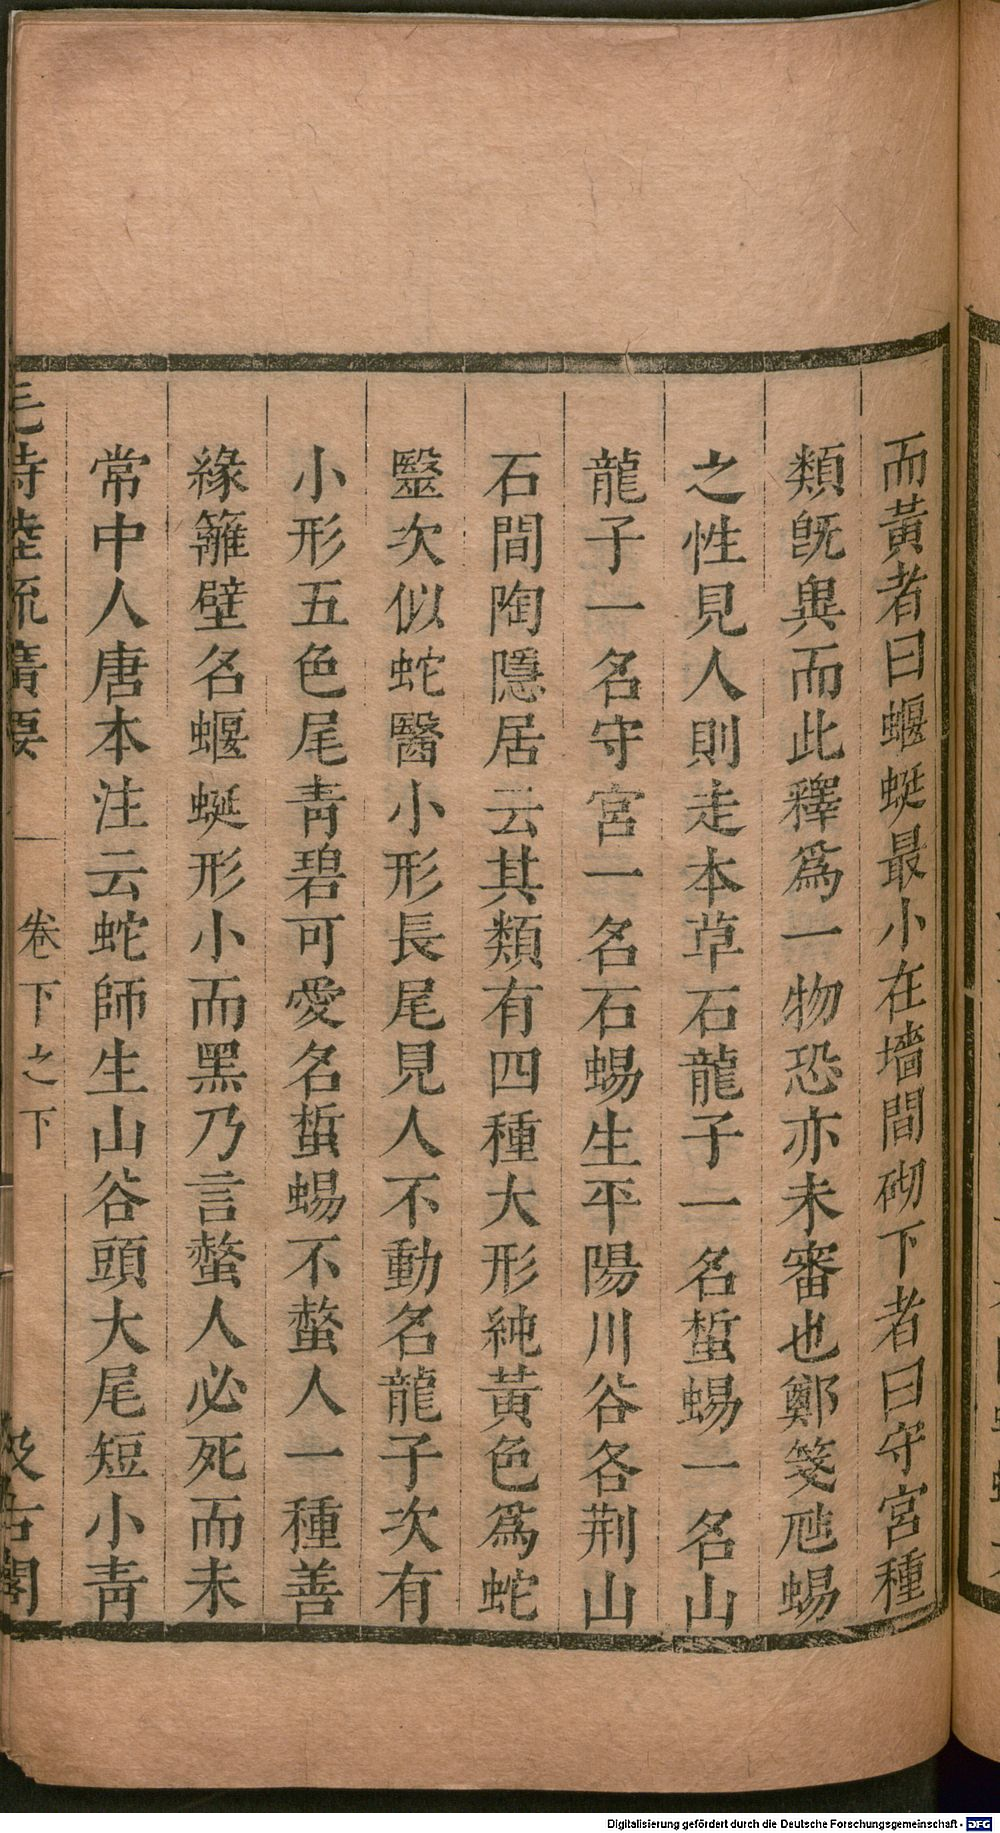 而黃者曰蝘蜓最小在墻間砌下者曰守宮種
類旣異而此釋爲一物恐亦未審也鄭箋虺蜴
之性見人則走本草石龍子一名蜥蜴一名山
龍子一名守宮一名石蜴生平陽川谷各荆山
石間陶隱居云其類有四種大形純黃色爲蛇
毉次似蛇醫小形長尾見人不動名龍子次有
小形五色尾靑碧可愛名蜥蜴不螫人一種善
緣籬壁名蝘蜓形小而黑乃言螫人必死而未
常中人唐本注云蛇師生山谷頭大尾短小靑
毛詩陸疏廣要
卷下之下
汲古閣
Digitalisierung gefördert durch die Deutsche Forschungsgemeinschaft - DFG